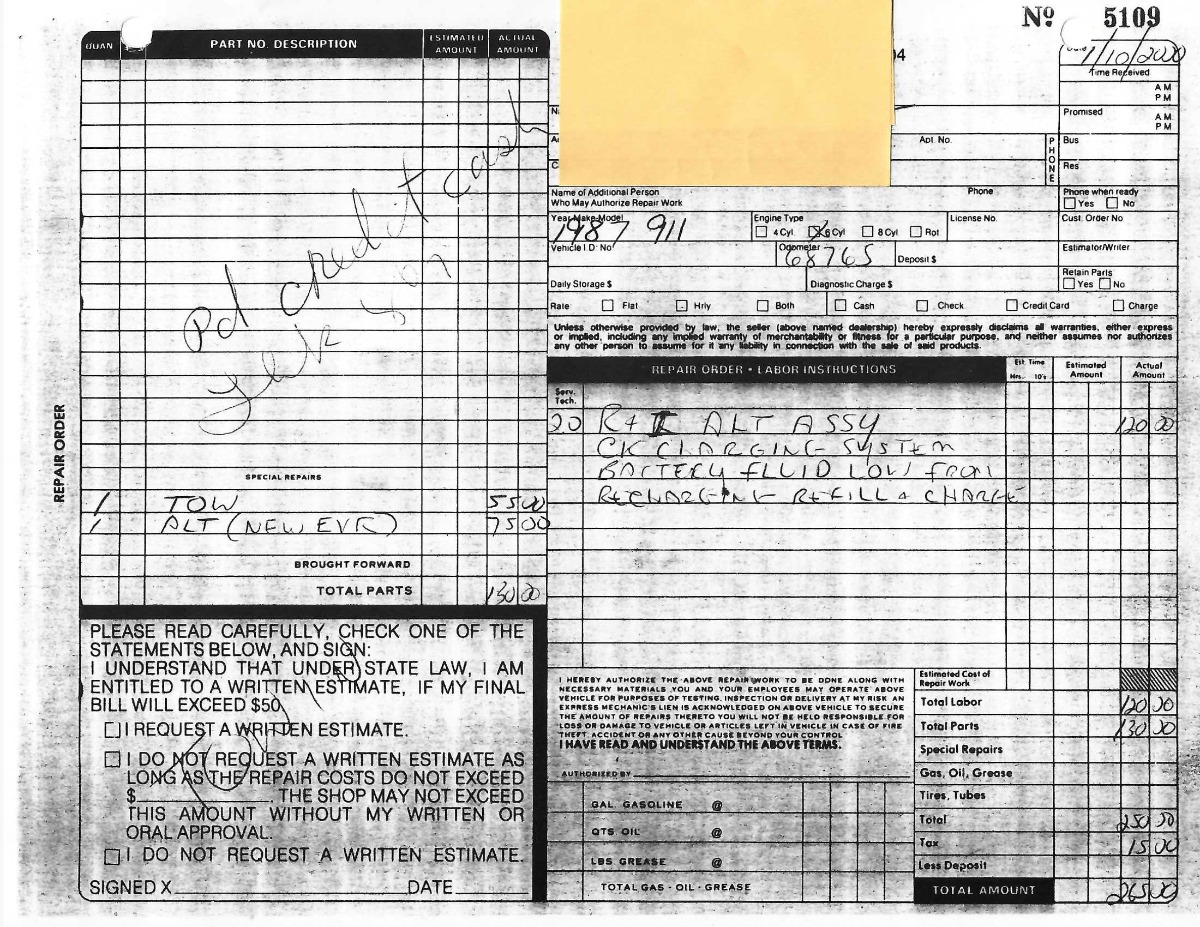 Nº 5109
QUAN
PART NO. DESCRIPTION
ESTIMATED AMOUNT
ACTUAL AMOUNT
Pd credit cash
SPECIAL REPAIRS
1 TOW 55 00
1 ALT (NEW EVR) 75 00
BROUGHT FORWARD
TOTAL PARTS 130 00
REPAIR ORDER
PLEASE READ CAREFULLY, CHECK ONE OF THE
STATEMENTS BELOW, AND SIGN:
I UNDERSTAND THAT UNDER STATE LAW, I AM
ENTITLED TO A WRITTEN ESTIMATE, IF MY FINAL
BILL WILL EXCEED $50.
I REQUEST A WRITTEN ESTIMATE.
I DO NOT REQUEST A WRITTEN ESTIMATE AS
LONG AS THE REPAIR COSTS DO NOT EXCEED
$ . THE SHOP MAY NOT EXCEED
THIS AMOUNT WITHOUT MY WRITTEN OR
ORAL APPROVAL.
I DO NOT REQUEST A WRITTEN ESTIMATE.
SIGNED X DATE
04
Date 1/10/2020
Time Received
AM
PM
Promised AM
PM
Apt. No.
PHONE
Bus
Res
Name of Additional Person Phone
Who May Authorize Repair Work
Phone when ready
Yes No
Year-Make-Model
1987 911
Engine Type
4 Cyl. 6 Cyl 8 Cyl Rot
License No.
Cust. Order No
Vehicle I D: No
Odometer
68765
Deposit $
Estimator/Writer
Daily Storage $
Diagnostic Charge $
Retain Parts
Yes No
Rate Flat Hrly Both Cash Check Credit Card Charge
Unless otherwise provided by law, the seller (above named dealership) hereby expressly disclaims all warranties, either express
or implied, including any implied warranty of merchantability or fitness for a particular purpose, and neither assumes nor authorizes
any other person to assume for it any liability in connection with the sale of said products.
REPAIR ORDER • LABOR INSTRUCTIONS
Est. Time
Hrs. 10's
Estimated Amount
Actual Amount
Serv. Tech.
20 R+I ALT ASSY 120 00
CK CHARGING SYSTEM
BATTERY FLUID LOW FROM
RECHARGING REFILL & CHARGE
I HEREBY AUTHORIZE THE ABOVE REPAIR WORK TO BE DONE ALONG WITH
NECESSARY MATERIALS. YOU AND YOUR EMPLOYEES MAY OPERATE ABOVE
VEHICLE FOR PURPOSES OF TESTING, INSPECTION OR DELIVERY AT MY RISK. AN
EXPRESS MECHANIC'S LIEN IS ACKNOWLEDGED ON ABOVE VEHICLE TO SECURE
THE AMOUNT OF REPAIRS THERETO YOU WILL NOT BE HELD RESPONSIBLE FOR
LOSS OR DAMAGE TO VEHICLE OR ARTICLES LEFT IN VEHICLE IN CASE OF FIRE
THEFT, ACCIDENT OR ANY OTHER CAUSE BEYOND YOUR CONTROL
I HAVE READ AND UNDERSTAND THE ABOVE TERMS.
AUTHORIZED BY
GAL GASOLINE @
QTS OIL @
LBS GREASE @
TOTAL GAS - OIL - GREASE
Estimated Cost of
Repair Work
Total Labor 120 00
Total Parts 130 00
Special Repairs
Gas, Oil, Grease
Tires, Tubes
Total 250 00
Tax 15 00
Less Deposit
TOTAL AMOUNT 265 00